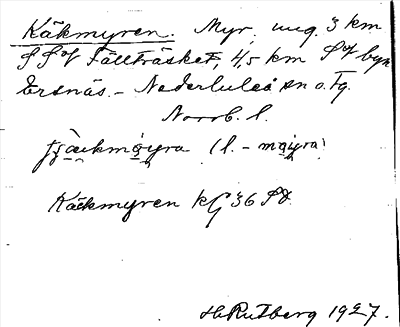 Käkmyren. Myr, ung. 3 km
S S of Fällträsket, 4,5 km S of byn
Ersnäs. - Nederluleå sn o. tg.
Norrb. l.
(l. -
Käkmyren kG 36 SO.
H. Rutberg 1927.